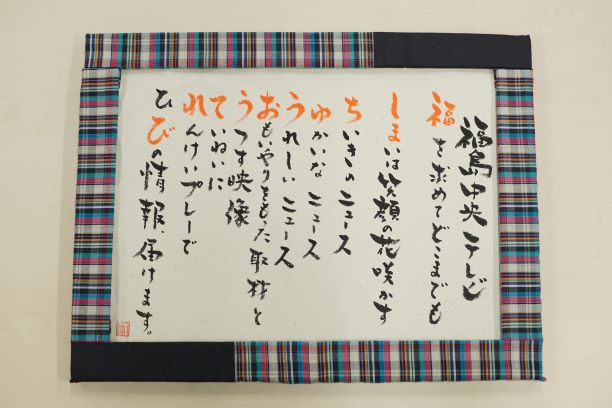 福島中央テレビ
福を求めてどこまでも
しまいは笑顔の花咲かす
ちいきのニュース
ゆかいなニュース
うれしいニュース
おもいやりをもった取材と
うつす映像
ていねいに
れんけいプレーで
ひびの情報、届けます。